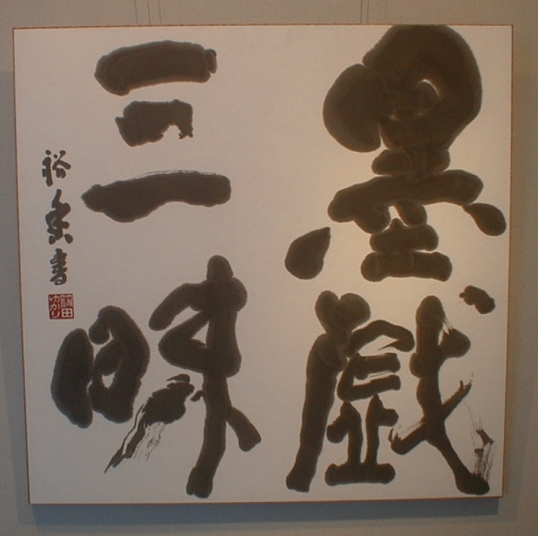 墨戯
三昧
裕香書